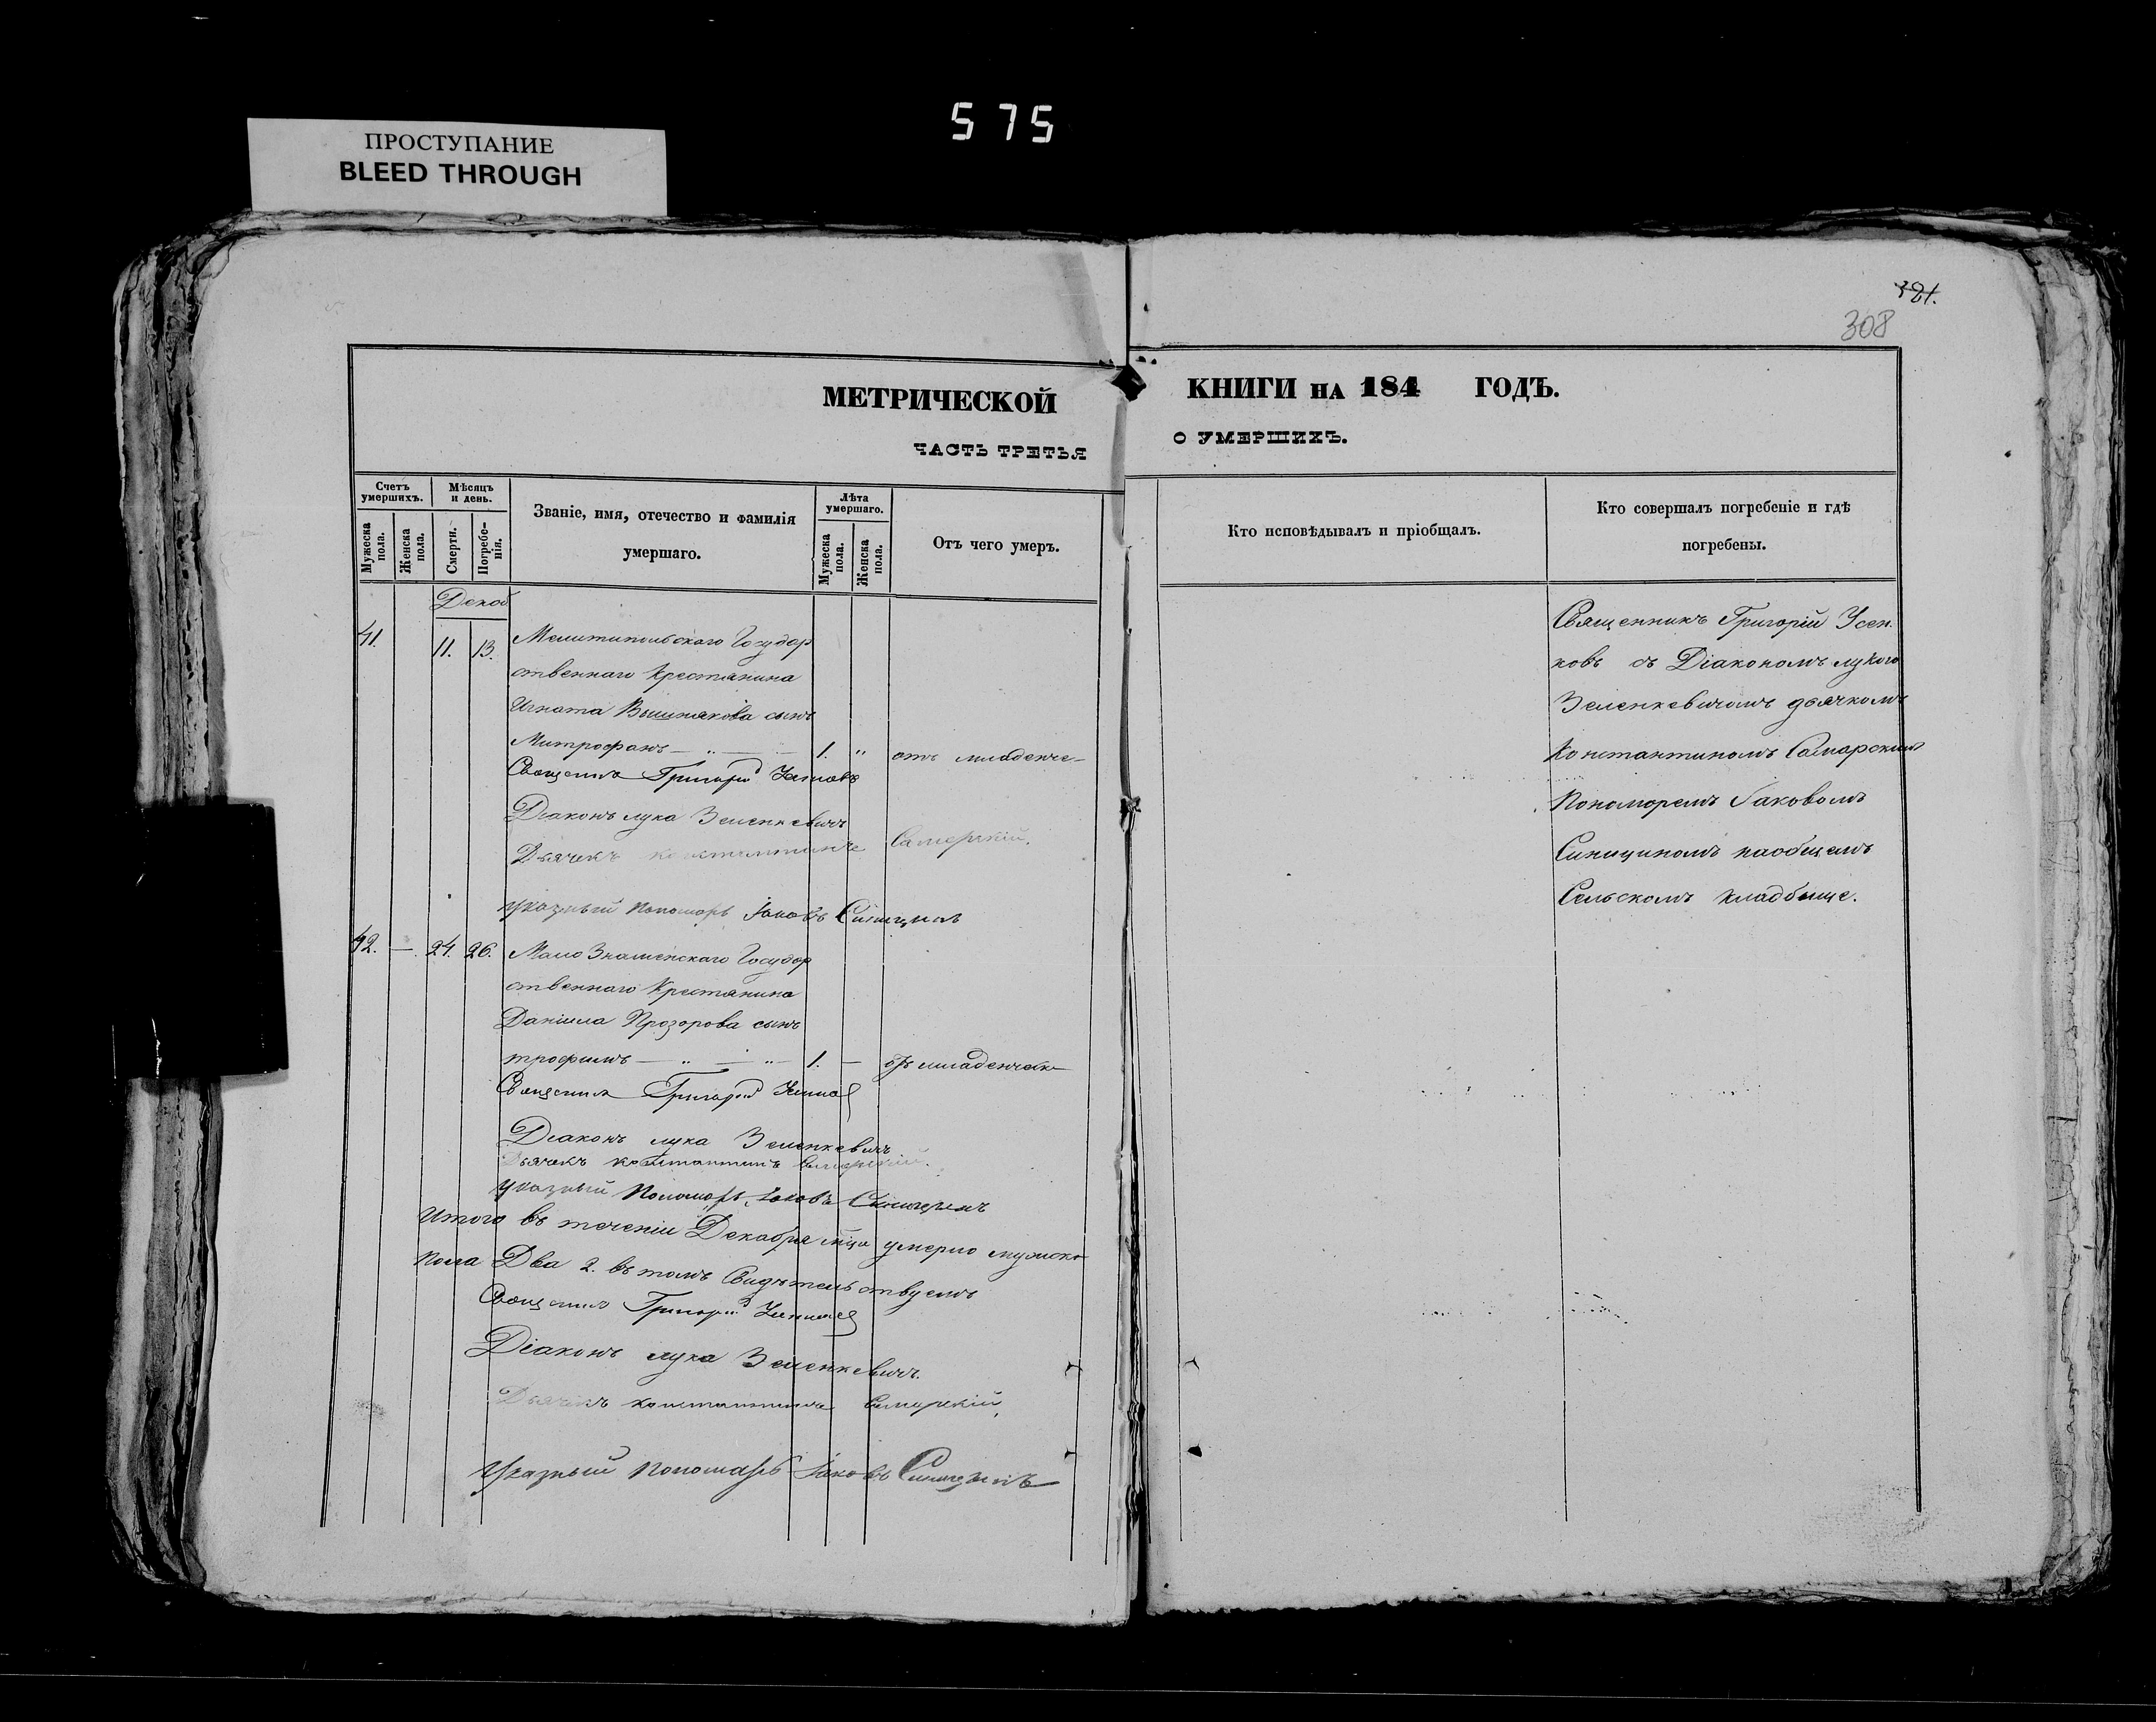 575
ПРОСТУПАНИЕ
BLEED THROUGH
321.
308
МЕТРИЧЕСКОЙ КНИГИ НА 184 ГОДЪ.
ЧАСТЬ ТРЕТЬЯ О УМЕРШИХЪ.
Счетъ умершихъ.
Мужеска пола.
Женска пола.
Мѣсяцъ и день.
Смерти.
Погребе-нія.
Званіе, имя, отечество и фамилія
умершаго.
Лѣта умершаго.
Мужеска пола.
Женска пола.
Отъ чего умеръ.
Кто исповѣдывалъ и пріобщалъ.
Кто совершалъ погребеніе и гдѣ
погребены.
Декаб
41. 11. 13. Мелитипольскаго Государ
ственнаго Крестянина
Игната Вишнякова сынъ
Митрофанъ — „ — 1. „ отъ младенче-
Священникъ Григорій
Діаконъ лука Зеленкевичъ
Дьячекъ константинъ Самарскій.
указный Пономарь Іаковъ Синицинъ
42. — 24. 26. Мало Знаменскаго Государ
ственнаго Крестянина
Даніила Прозорова сынъ
трофимъ — „ — „ — 1. — отъ младенческ
Священникъ Григорій
Діаконъ лука Зеленкевичъ
Дьячекъ константинъ Самарскій.
указный Пономарь Іаковъ Синицинъ
Итого въ теченіи Декабря мца умерло мужска
пола Два 2. въ томъ Свидѣтельствуемъ
Священникъ Григорій
Діаконъ лука Зеленкевичъ.
Дьячекъ константинъ Самарскій.
Указный пономарь Іаковъ Синицинъ
Священникъ Григорій Усен.
ковъ съ Діакономъ лукою
Зеленкевичомъ дьячкомъ
Константиномъ Самарскимъ
Пономоремъ Іаковомъ
Синициномъ наобщемъ
Сельскомъ кладбище.